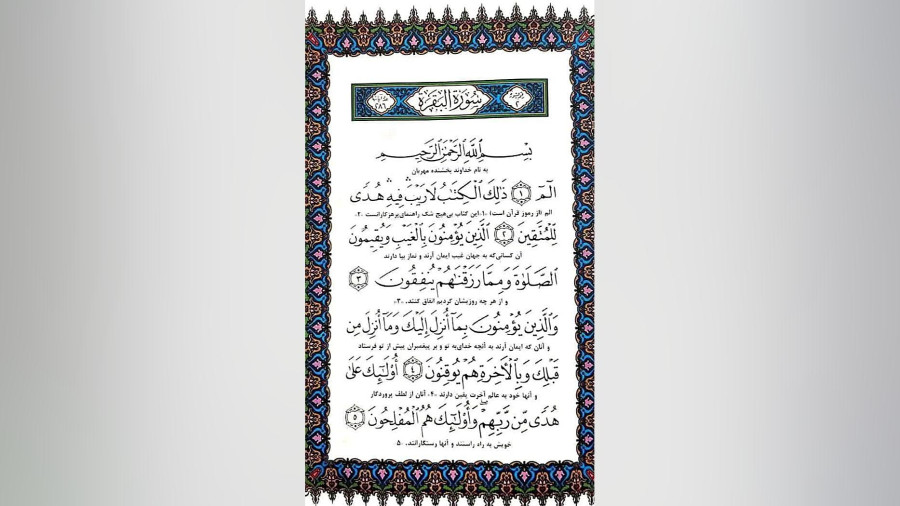 سُورَةُ الْبَقَرَةِ
٢٨٦
بِسْمِ اللَّهِ الرَّحْمَٰنِ الرَّحِيمِ
به نام خداوند بخشنده مهربان
الٓمٓ ﴿١﴾ ذَٰلِكَ الْكِتَابُ لَا رَيْبَ ۛ فِيهِ ۛ هُدًى
الم (از رموز قرآن است) ۰۱ این کتاب بی‌هیچ شک راهنمای پرهیزکارانست ۰۲
لِلْمُتَّقِينَ ﴿٢﴾ الَّذِينَ يُؤْمِنُونَ بِالْغَيْبِ وَيُقِيمُونَ
آن کسانی‌که به جهان غیب ایمان آرند و نماز بپا دارند
الصَّلَوٰةَ وَمِمَّا رَزَقْنَاهُمْ يُنفِقُونَ ﴿٣﴾
و از هر چه روزیشان کردیم انفاق کنند، «۳»
وَالَّذِينَ يُؤْمِنُونَ بِمَا أُنزِلَ إِلَيْكَ وَمَا أُنزِلَ مِن
و آنان که ایمان آرند به آنچه خدای به تو و بر پیغمبران پیش از تو فرستاد
قَبْلِكَ وَبِالْآخِرَةِ هُمْ يُوقِنُونَ ﴿٤﴾ أُولَٰئِكَ عَلَىٰ
و آنها خود به عالم آخرت یقین دارند «۴» آنان از لطف پروردگار
هُدًى مِّن رَّبِّهِمْ ۖ وَأُولَٰئِكَ هُمُ الْمُفْلِحُونَ ﴿٥﴾
خویش به راه راستند و آنها رستگارانند، ۰۵